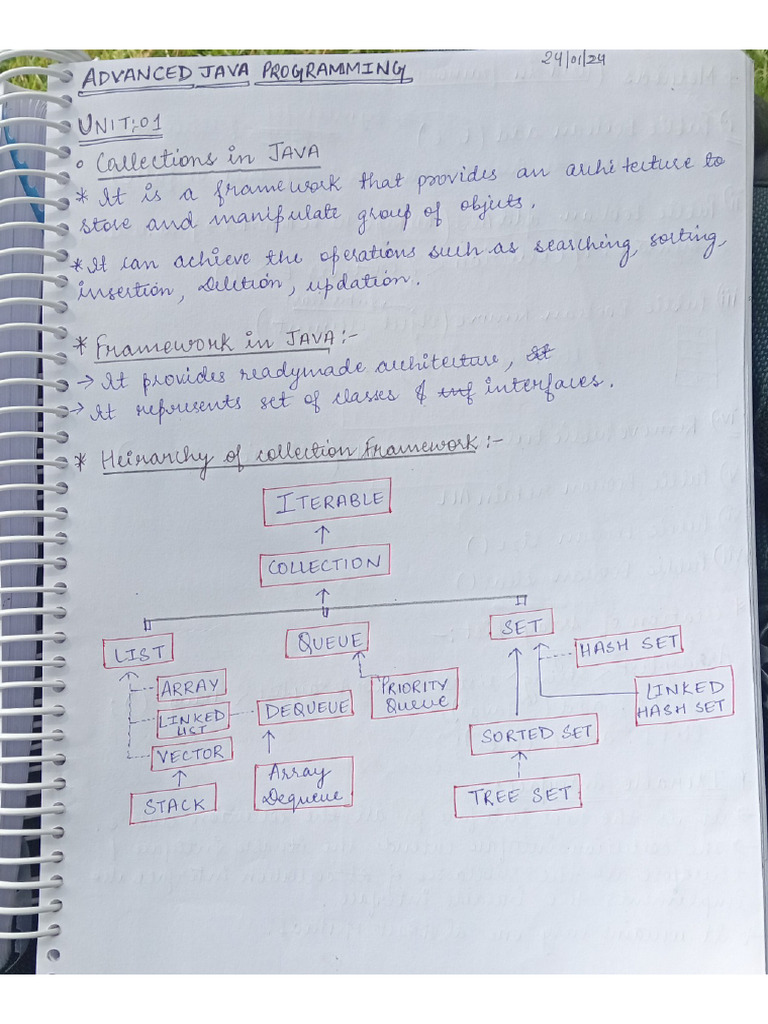 ADVANCED JAVA PROGRAMMING
24/01/24
UNIT:01
Collections in JAVA
* It is a framework that provides an architecture to
store and manipulate group of objects.
* It can achieve the operations such as searching, sorting,
insertion, Deletion, updation.
* Framework in JAVA:-
→ It provides readymade architecture,
→ It represents set of classes & interfaces.
* Heirarchy of collection Framework:-
ITERABLE
COLLECTION
LIST
QUEUE
SET
HASH SET
ARRAY
LINKED LIST
VECTOR
STACK
DEQUEUE
Array
Dequeue
PRIORITY
Queue
LINKED
HASH SET
SORTED SET
TREE SET